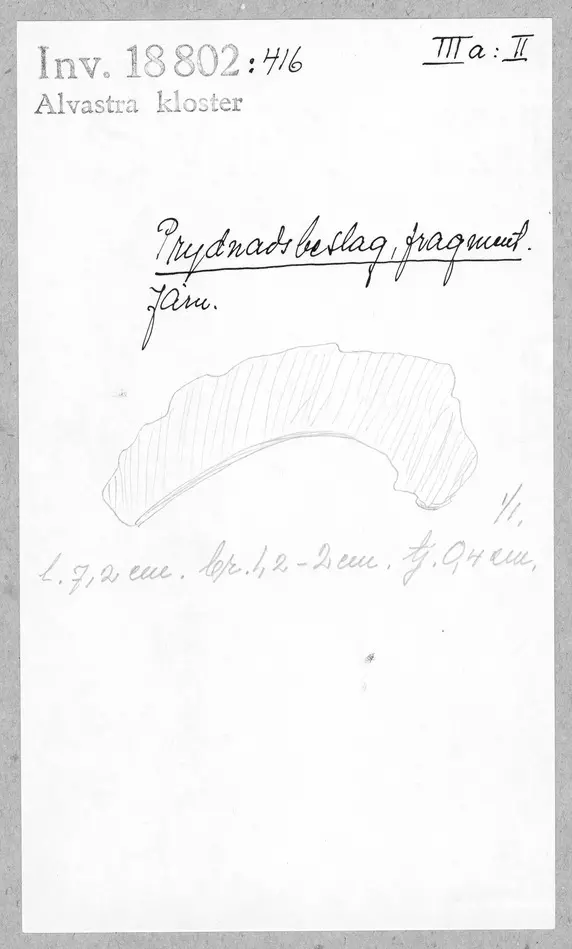 Inv. 18 802:416
III a : II
Alvastra kloster
Prydnadsbeslag, fragment.
Järn.
1/1.
l. 7,2 cm. br. 1,2 - 2 cm. tj. 0,4 cm.